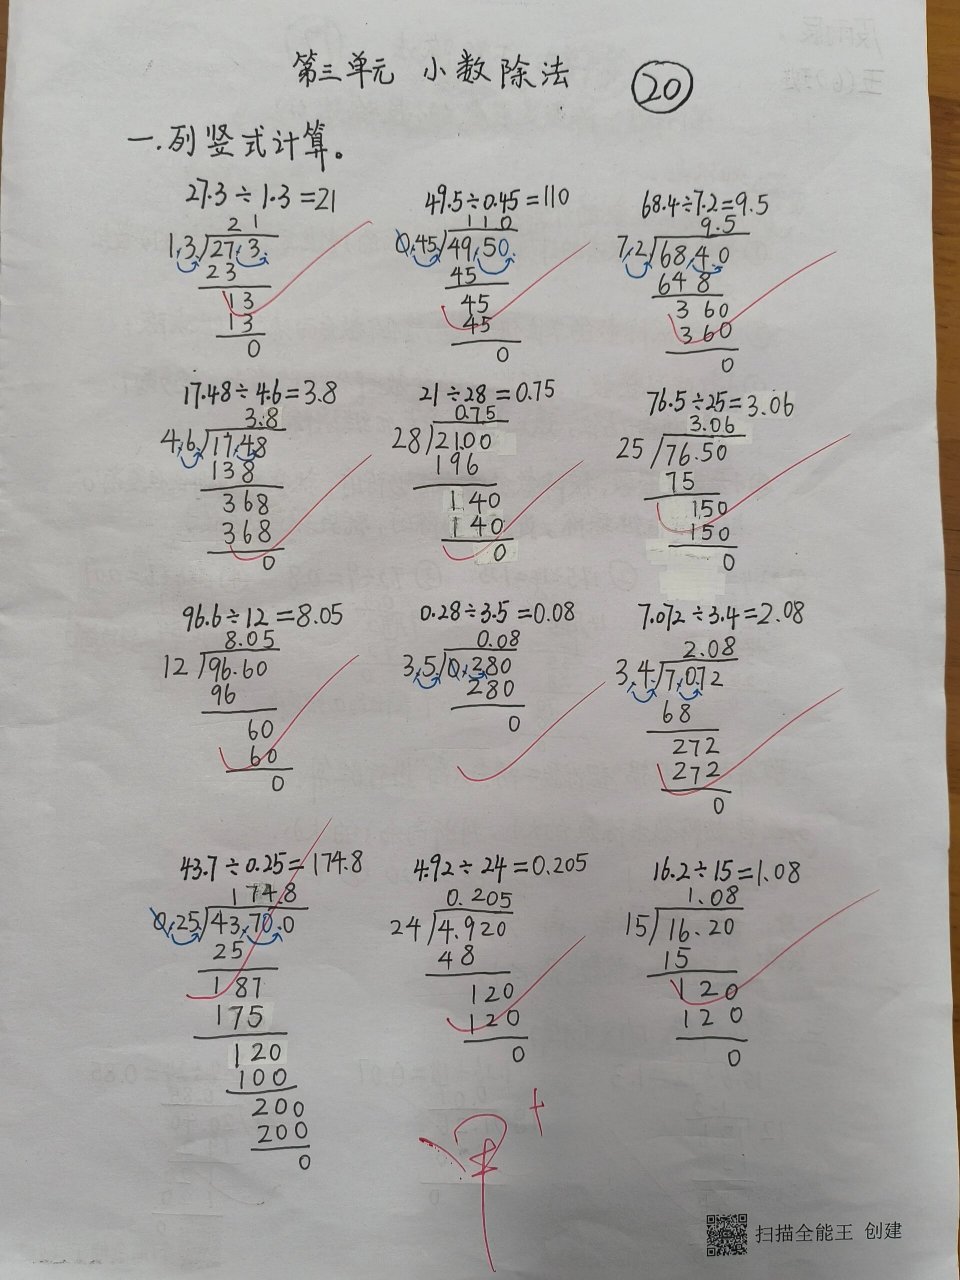 第三单元 小数除法 20
一.列竖式计算。
27.3÷1.3=21 49.5÷0.45=110 68.4÷7.2=9.5
21 110 9.5
1.3 27.3. 0.45 49.50. 7.2 68.4.0
23 45 648
13 45 360
13 45 360
0 0 0
17.48÷4.6=3.8 21÷28=0.75 76.5÷25=3.06
3.8 0.75 3.06
4.6 17.48 28 21.00 25 76.50
138 196 75
368 140 150
368 140 150
0 0 0
96.6÷12=8.05 0.28÷3.5=0.08 7.072÷3.4=2.08
8.05 0.08 2.08
12 96.60 3.5 0.280 3.4 7.072
96 280 68
60 0 272
60 272
0 0
43.7÷0.25=174.8 4.92÷24=0.205 16.2÷15=1.08
174.8 0.205 1.08
0.25 43.70.0 24 4.920 15 16.20
25 48 15
187 120 120
175 120 120
120 0 0
100
200
200
0
扫描全能王 创建